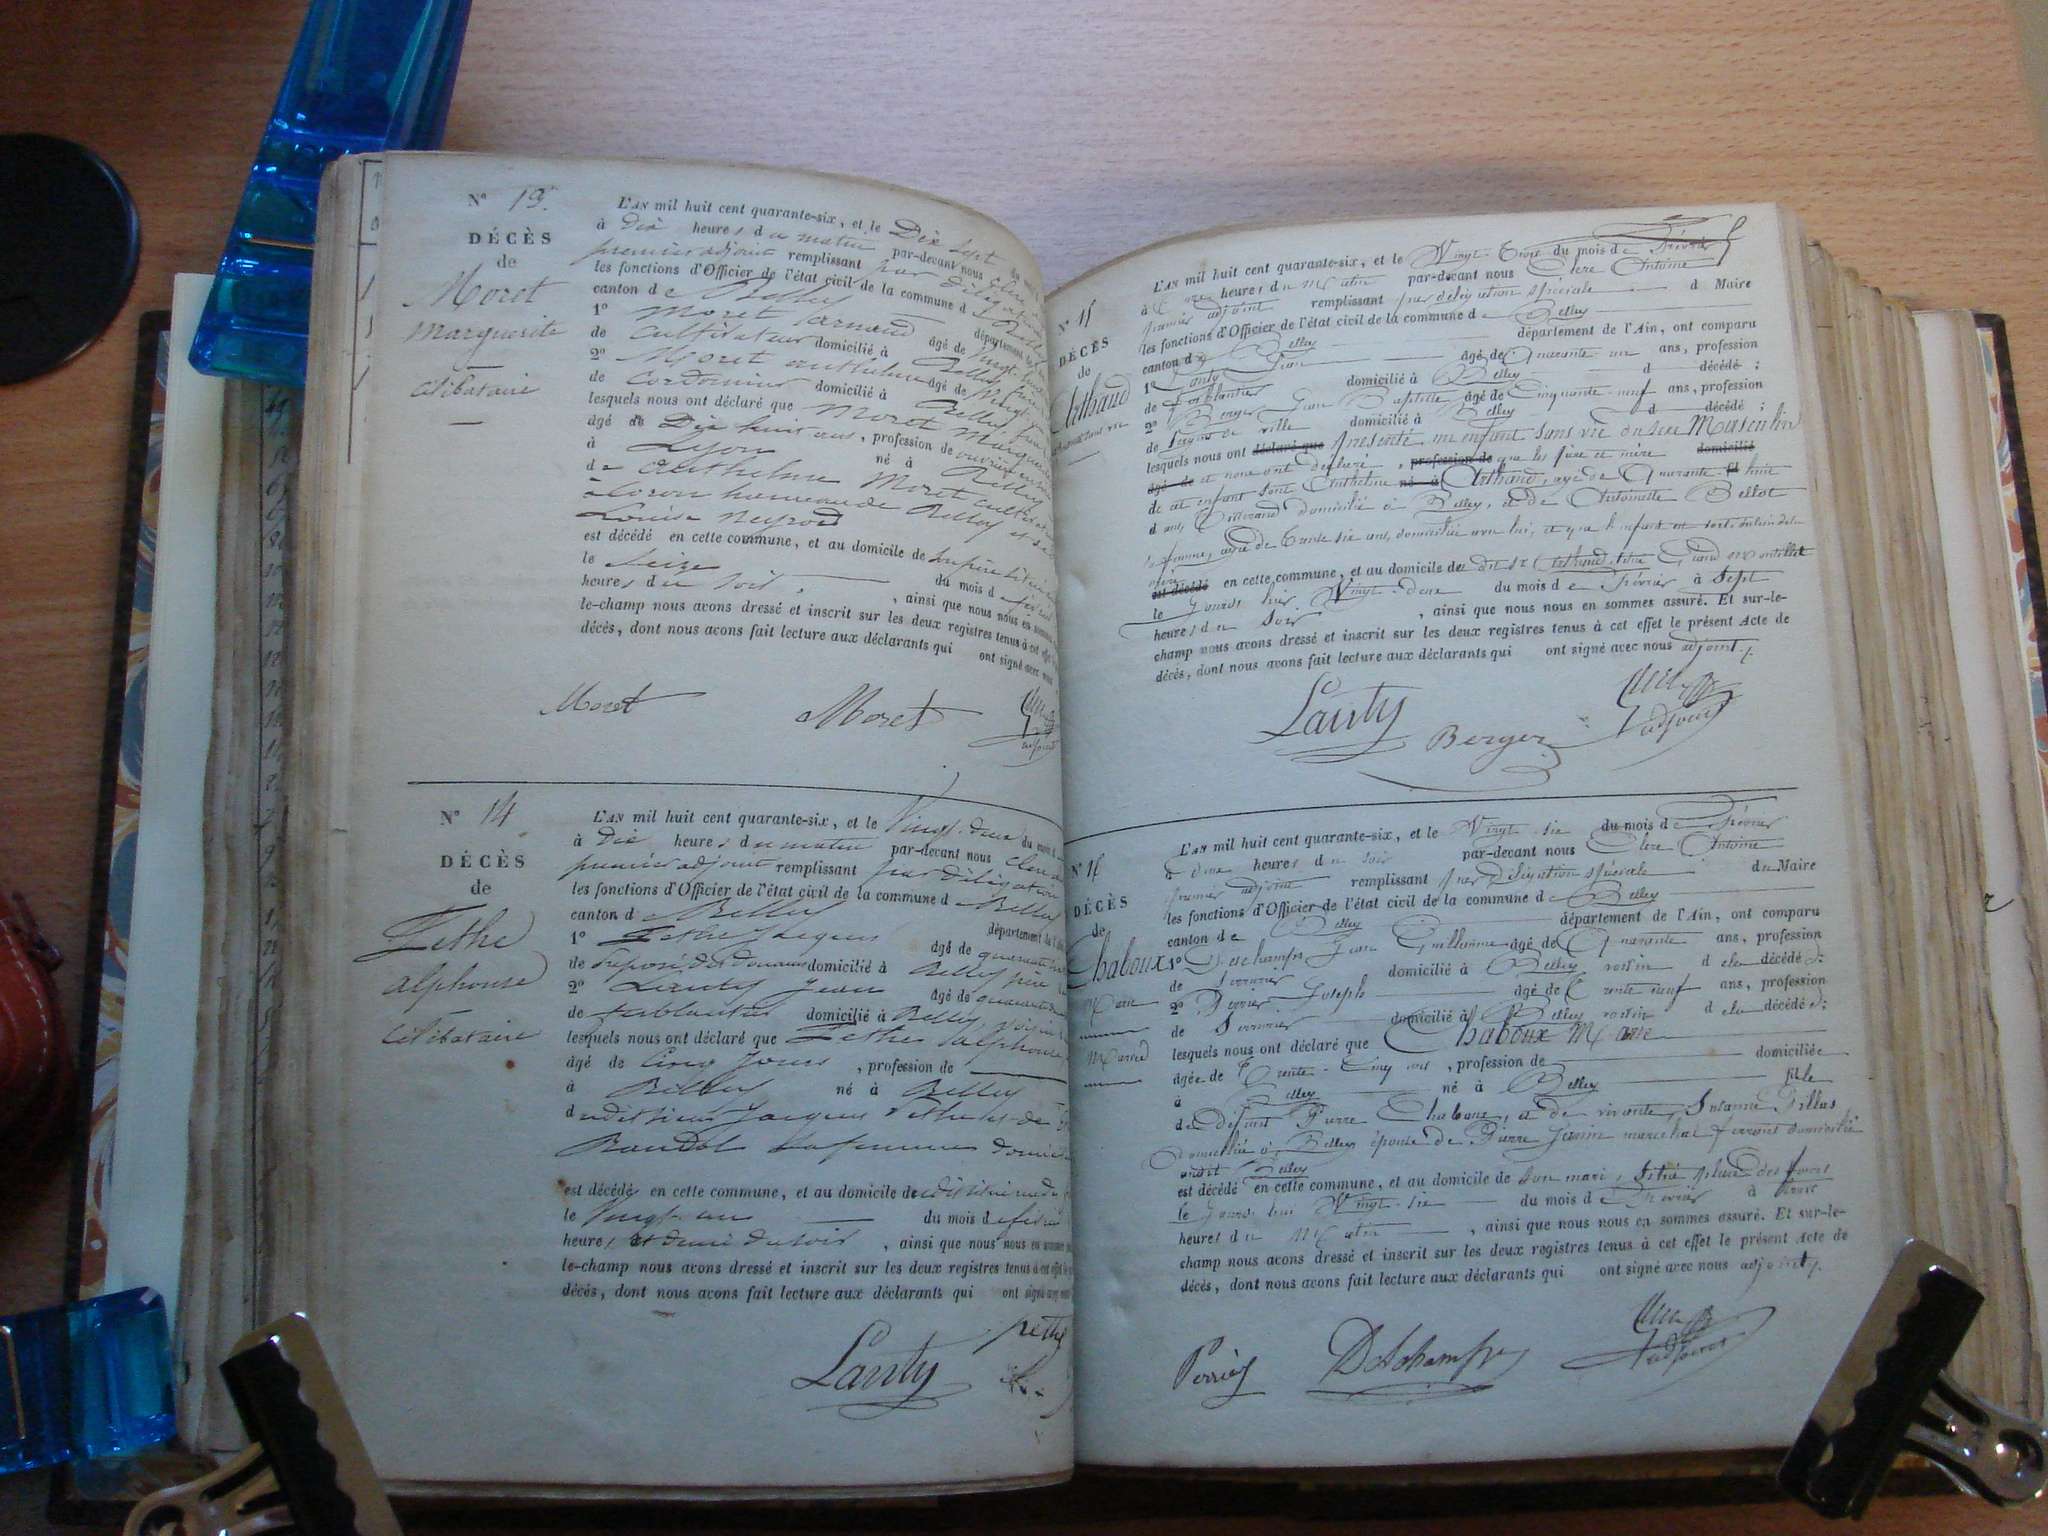 N° 13.
DÉCÈS
de
Moret
Marguerite
célibataire
L'AN mil huit cent quarante-six, et le Dix Sept du
à Dix heures du matin par-devant nous Clerc
premier adjoint remplissant par délégation
les fonctions d'Officier de l'état civil de la commune d Belley
canton de Belley
1° Moret armand département
de cultivateur domicilié à Belley âgé de vingt
2° Moret anthelme âgé de vingt
de Cordonnier domicilié à Belley
lesquels nous ont déclaré que Moret Marguerite
âgé de Dix huit ans, profession de ouvrière
à Lyon né à Belley
de anthelme Moret cultivateur
à Coron hameau de Belley et de
Louise Neyrod
est décédé en cette commune, et au domicile de son père
le Seize du mois de février
heures du soir, ainsi que nous nous en sommes
le-champ nous avons dressé et inscrit sur les deux registres tenus à cet effet
décès, dont nous avons fait lecture aux déclarants qui ont signé avec nous
Moret Moret
adjoint
N° 14
DÉCÈS
de
Pethe
alphonse
célibataire
L'AN mil huit cent quarante-six, et le Vingt-deux du mois d
à Dix heures du matin par-devant nous Clerc
premier adjoint remplissant par délégation
les fonctions d'Officier de l'état civil de la commune de Belley
canton d Belley
1° Pethe Jacques département de l'Ain
de Préposé des Douanes domicilié à Belley âgé de quarante
2° Lanty Jean âgé de quarante
de ferblantier domicilié à Belley
lesquels nous ont déclaré que Pethe alphonse
âgé de Cinq Jours, profession de
à Belley né à Belley
du dit sieur Jacques Pethe et de
Baudot sa femme
est décédé en cette commune, et au domicile de
le Vingt-un du mois de février
heures et demi du soir, ainsi que nous nous en sommes
le-champ nous avons dressé et inscrit sur les deux registres tenus à cet effet
décès, dont nous avons fait lecture aux déclarants qui ont signé avec nous
pethe
Lanty
N° 15
DÉCÈS
de
Arthaud
sans vie
L'AN mil huit cent quarante-six, et le Vingt-trois du mois de Février
à onze heures du Matin par-devant nous Clerc Antoine
premier adjoint remplissant par délégation spéciale d Maire
les fonctions d'Officier de l'état civil de la commune de Belley
canton de Belley département de l'Ain, ont comparu
1° Lanty Jean âgé de Quarante-un ans, profession
de Ferblantier domicilié à Belley d décédé ;
2° Berger Jean Baptiste âgé de Cinquante-neuf ans, profession
de Sergent de ville domicilié à Belley d décédé ;
lesquels nous ont déclaré que présenté un enfant sans vie du sexe Masculin
âgé de et nous ont déclaré, profession de que les père et mère domicilié
de cet enfant sont Anthelme né à Arthaud, âgé de Quarante-huit
d ans, Tisserand domicilié à Belley, et de Antoinette Bellot
sa femme, âgée de Trente six ans, domiciliée avec lui, et que l'enfant est sorti du sein de la
mère
est décédé en cette commune, et au domicile du dit Sr Arthaud,
le jourd'hier Vingt-deux du mois de Février à Sept
heures du Soir, ainsi que nous nous en sommes assuré. Et sur-le-
champ nous avons dressé et inscrit sur les deux registres tenus à cet effet le présent Acte de
décès, dont nous avons fait lecture aux déclarants qui ont signé avec nous adjoint.
Lanty Berger adjoint
N° 16
DÉCÈS
de
Chaboux
Marie
Mariée
L'AN mil huit cent quarante-six, et le Vingt-six du mois de Février
à une heures du soir par-devant nous Clerc Antoine
premier adjoint remplissant par délégation spéciale du Maire
les fonctions d'Officier de l'état civil de la commune de Belley
canton de Belley département de l'Ain, ont comparu
1° Deschamps Jean Guillaume âgé de Quarante ans, profession
de Serrurier domicilié à Belley voisin d ela décédée ;
2° Perrier Joseph âgé de Trente neuf ans, profession
de Serrurier domicilié à Belley voisin d ela décédée ;
lesquels nous ont déclaré que Chaboux Marie
âgée de Trente-Cinq ans, profession de domiciliée
à Belley né à Belley fille
de défunt Pierre Chaboux, et de vivante, Suzanne
domiciliée à Belley épouse de Pierre maréchal ferrant domicilié
audit Belley
est décédé en cette commune, et au domicile de son mari, situé place des
le jourd'hui Vingt-six du mois de Février à trois
heures du Matin, ainsi que nous nous en sommes assuré. Et sur-le-
champ nous avons dressé et inscrit sur les deux registres tenus à cet effet le présent Acte de
décès, dont nous avons fait lecture aux déclarants qui ont signé avec nous adjoint.
Perrier Deschamps adjoint